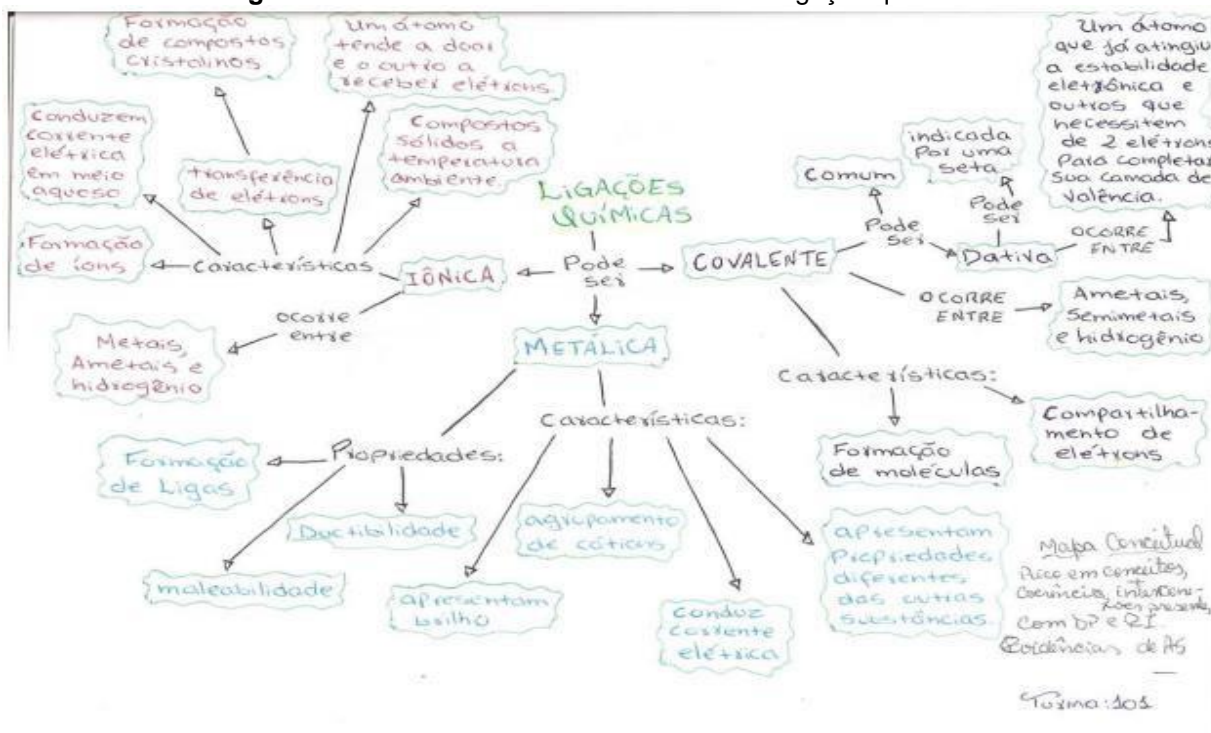 Formação
de compostos
cristalinos
Um átomo
tende a doar
e o outro a
receber elétrons.
Conduzem
corrente
elétrica
em meio
aquoso
transferência
de elétrons
Compostos
sólidos a
temperatura
ambiente.
Formação
de íons
Características
IÔNICA
ocorre
entre
Metais,
Ametais e
hidrogênio
LIGAÇÕES
QUÍMICAS
Pode
ser
COVALENTE
Pode
ser
Comum
Dativa
Pode
ser
indicada
Por uma
seta
OCORRE
ENTRE
Um átomo
que já atingiu
a estabilidade
eletrônica e
outros que
necessitem
de 2 elétrons
Para completar
Sua camada de
Valência.
OCORRE
ENTRE
Ametais,
Semimetais
e hidrogênio
Características:
Formação
de moléculas
Compartilha-
mento de
elétrons
METÁLICA
Propriedades:
Formação
de Ligas
maleabilidade
Ductibilidade
Características:
apresentam
brilho
agrupamento
de cátions
conduz
corrente
elétrica
apresentam
Propriedades
diferentes
das outras
substâncias.
Mapa Conceitual
Rico em conceitos,
presentes,
com DP e RI
Evidências de AS
Turma: 101